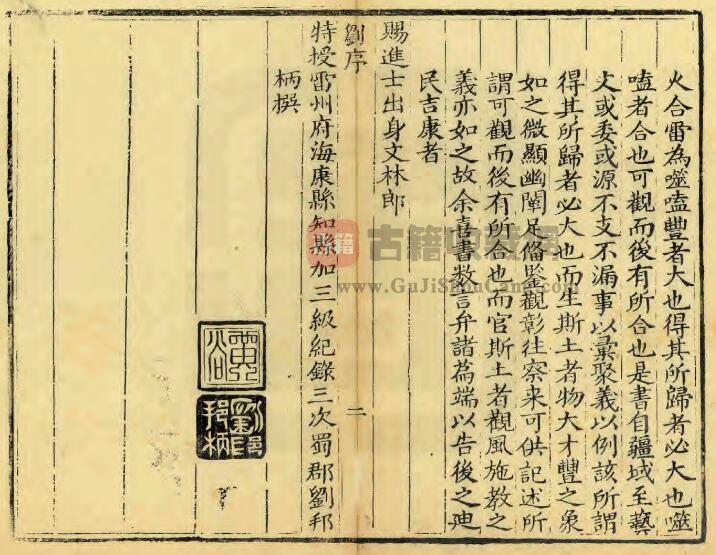 火合雷為噬嗑豐者大也得其所歸者必大也噬
嗑者合也可觀而後有所合也是書自疆域至藝
文或委或源不支不漏事以彙聚義以例該所謂
得其所歸者必大也而生斯土者物大才豐之象
如之微顯幽闡足俻鑒觀彰往察来可供記述所
謂可觀而後有所合也而官斯土者觀風施教之
義亦如之故余喜書数言弁諸篇端以告後之迪
民吉康者
賜進士出身文林郎
劉序
二
特授雷州府海康縣知縣加三級紀錄三次蜀郡劉邦
柄撰
劉邦柄印
古籍收藏網
www.GuJiShouCang.com